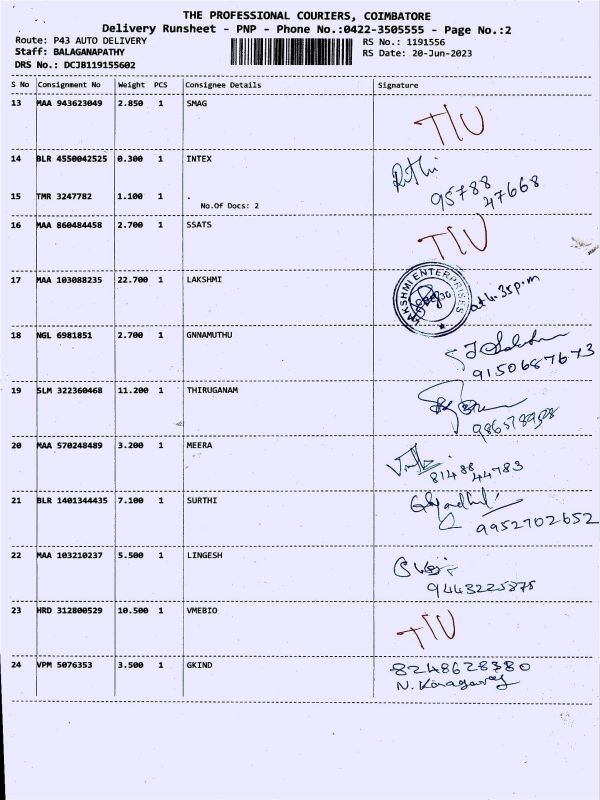 THE PROFESSIONAL COURIERS, COIMBATORE
Delivery Runsheet - PNP - Phone No.:0422-3505555 - Page No.:2
Route: P43 AUTO DELIVERY RS No.: 1191556
Staff: BALAGANAPATHY RS Date: 20-Jun-2023
DRS No.: DCJB119155602
S No Consignment No Weight PCS Consignee Details Signature
13 MAA 943623049 2.850 1 SMAG
14 BLR 4550042525 0.300 1 INTEX
95788
47668
15 TMR 3247782 1.100 1 .
No.Of Docs: 2
16 MAA 860484458 2.700 1 SSATS
17 MAA 103088235 22.700 1 LAKSHMI
LAKSHMI ENTERPRISES
18 NGL 6981851 2.700 1 GNNAMUTHU
9150687673
19 SLM 322360468 11.200 1 THIRUGANAM
20 MAA 570248489 3.200 1 MEERA
81488 44783
21 BLR 1401344435 7.100 1 SURTHI
9952702652
22 MAA 103210237 5.500 1 LINGESH
9443225875
23 HRD 312800529 10.500 1 VMEBIO
24 VPM 5076353 3.500 1 GKIND
8248628380